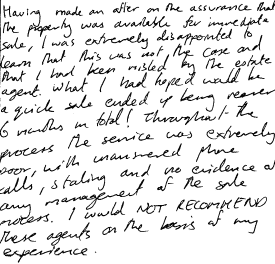 Having made an offer on the assurance that
the property was available for immediate
sale, I was extremely disappointed to
learn that this was not the case and
that I had been misled by the estate
agent. What I had hoped would be
a quick sale ended up being nearer
6 months in total! Throughout the
process the service was extremely
poor, with unanswered phone
calls, stalling and no evidence of
any management of the sale
process. I would NOT RECOMMEND
these agents on the basis of my
experience.